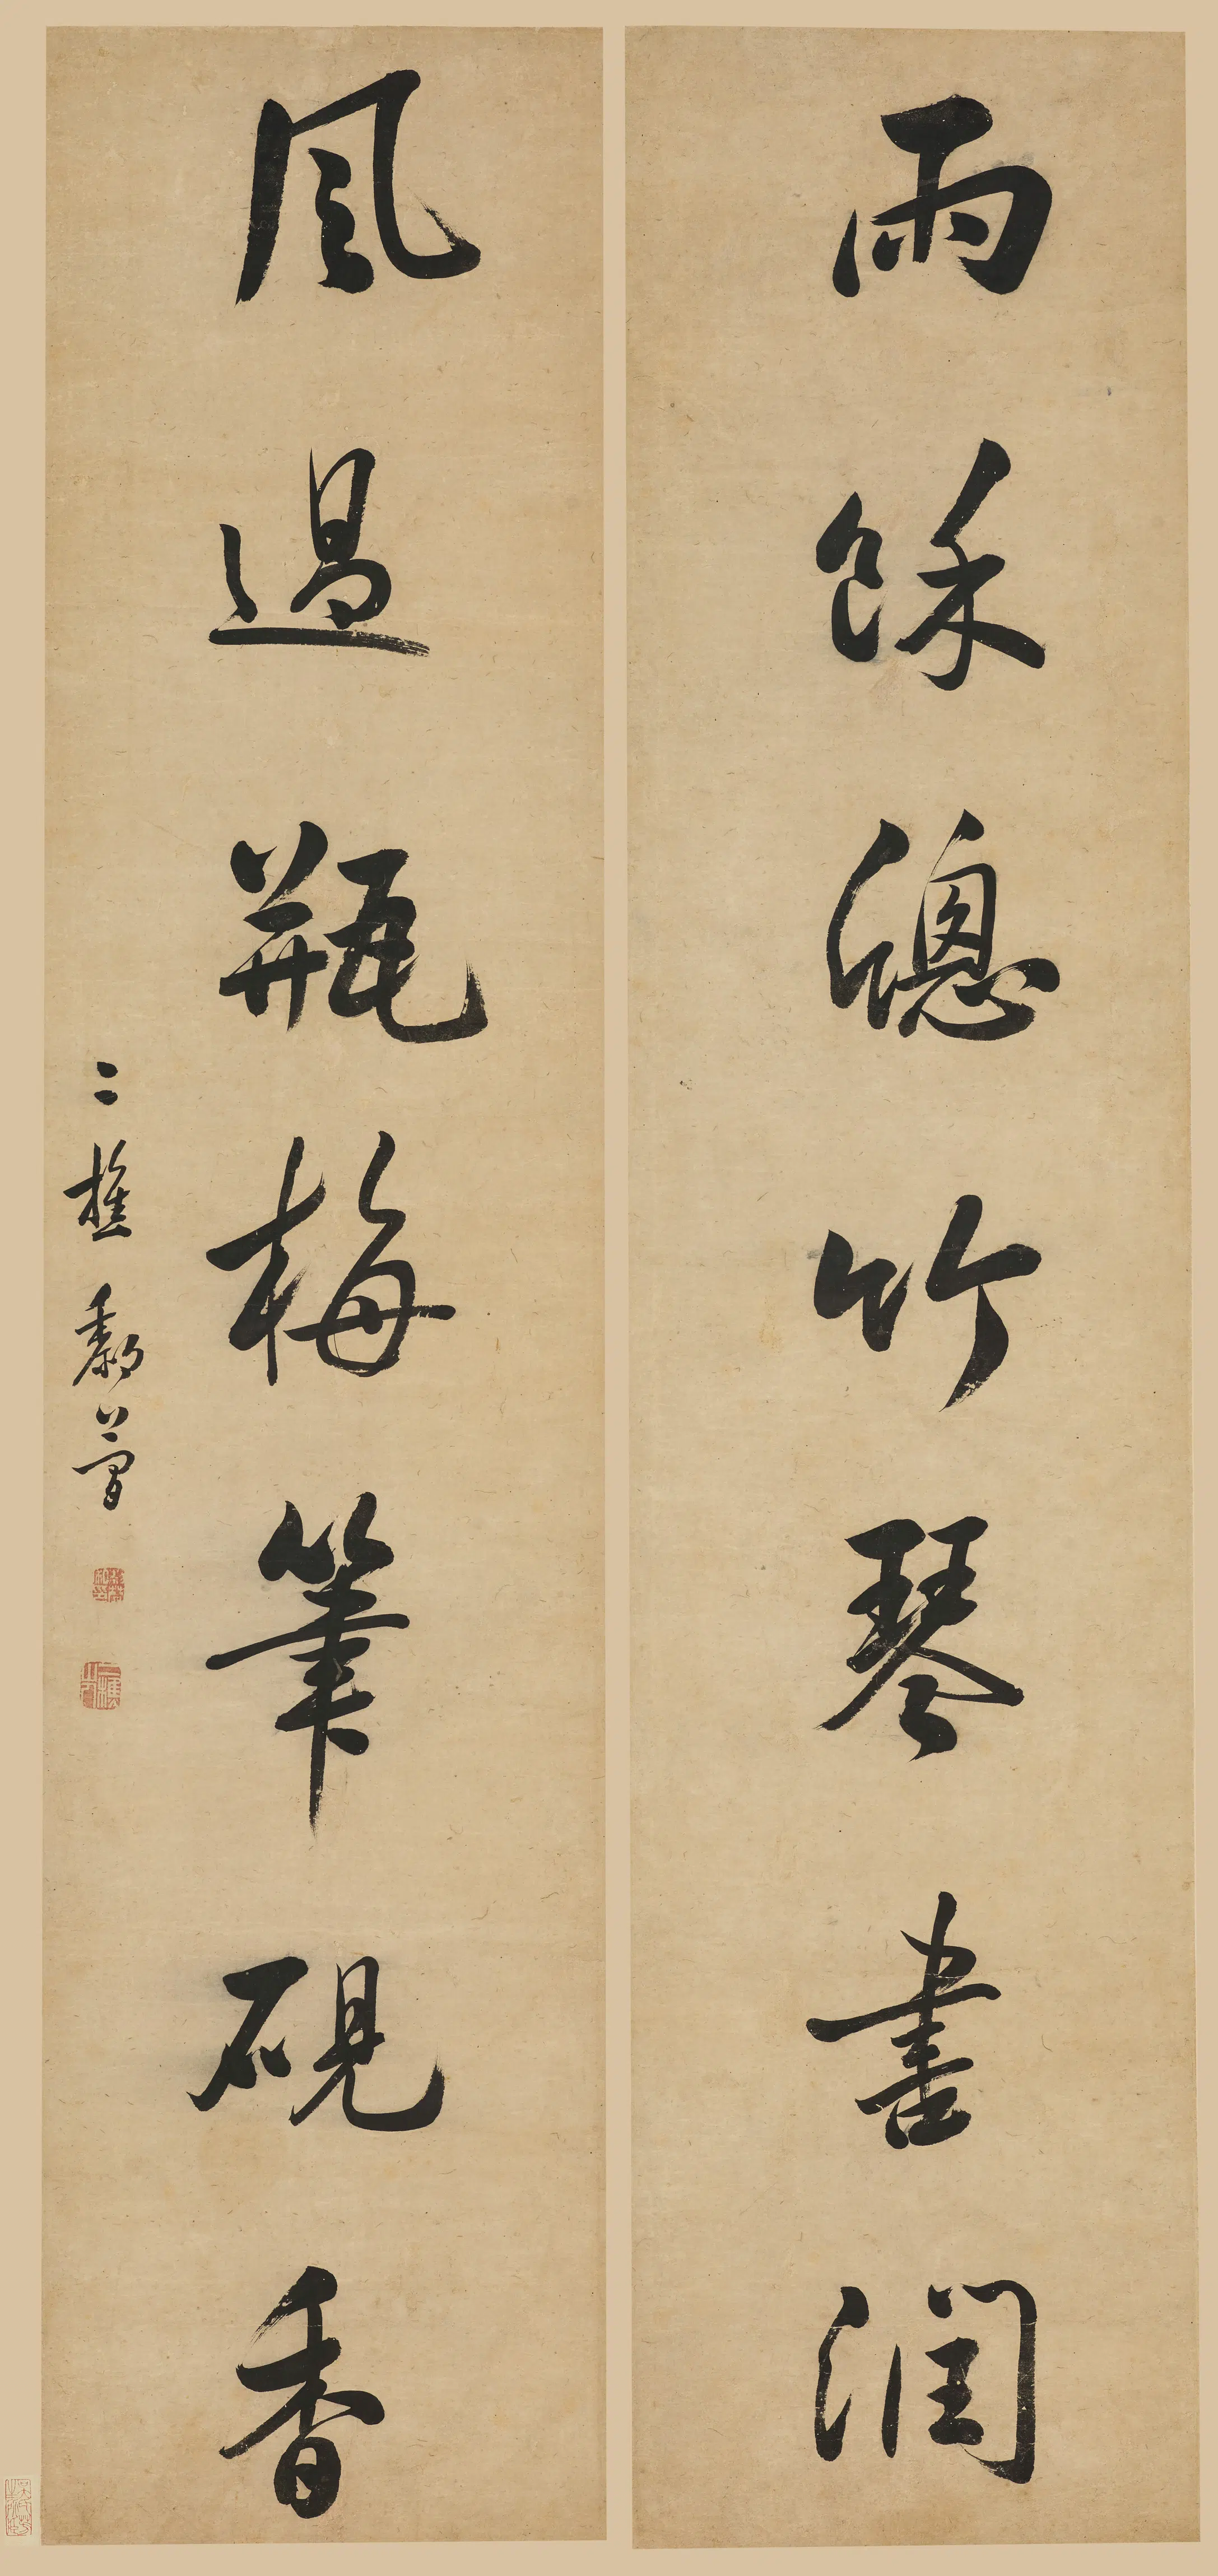 雨餘牕竹琴書潤
風過瓶梅筆硯香
二樵黎簡